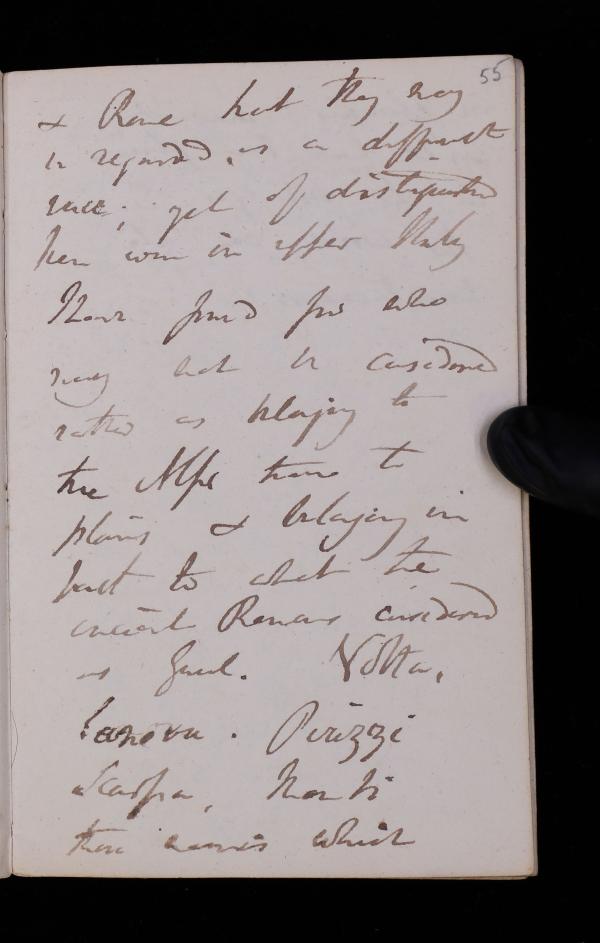 55
& Rome but they may
be regarded, as a different
race; yet of distinguished
men even in upper Italy
I have found few who
may not be considered
rather as belonging to
the Alps than to
plains & belonging in
fact to what the
ancient Romans considered
as Gaul. Volta,
Canova. Pirizzi
Scarpa, Monti
these names which